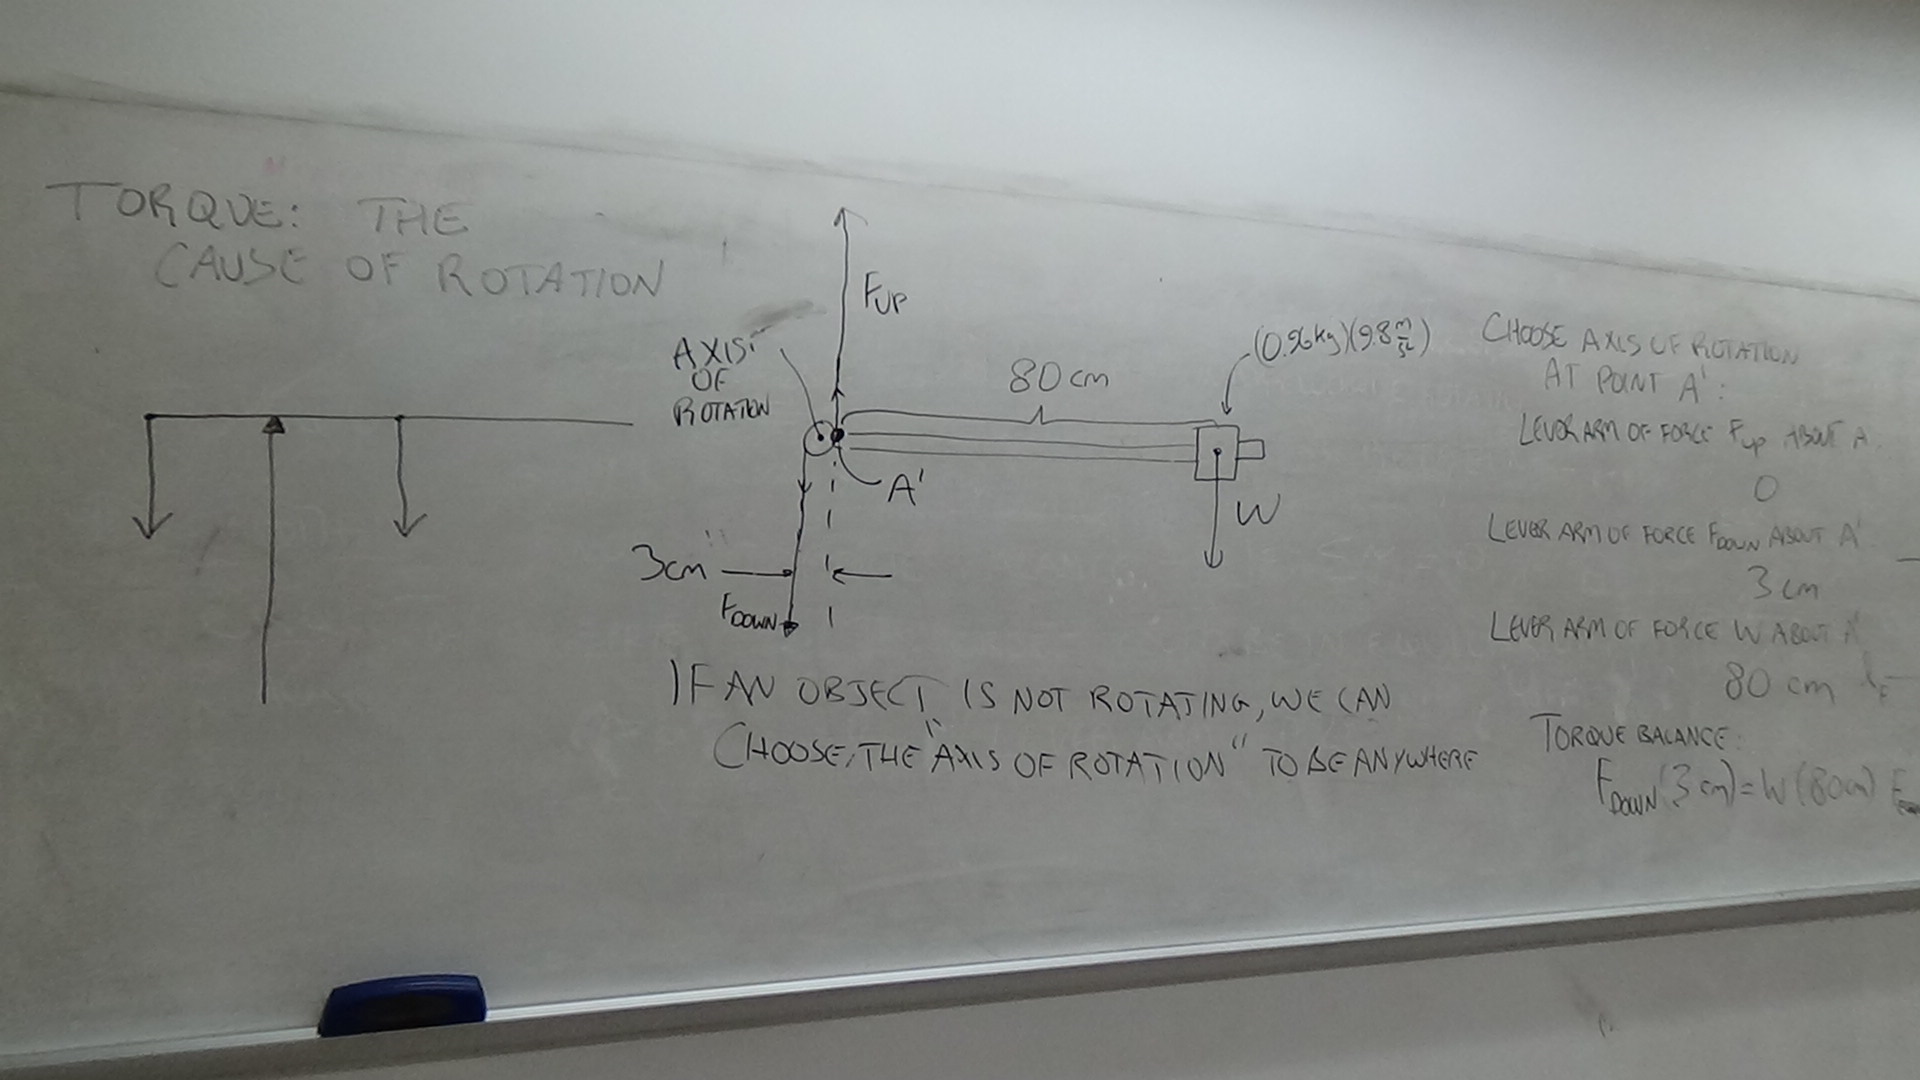 TORQUE: THE
CAUSE OF ROTATION
FUP
AXIS
OF
ROTATION
80 cm
(0.96kg)(9.8 m/s²)
A'
W
3cm
FDOWN
IF AN OBJECT IS NOT ROTATING, WE CAN
CHOOSE THE "AXIS OF ROTATION" TO BE ANYWHERE
CHOOSE AXIS OF ROTATION
AT POINT A':
LEVER ARM OF FORCE Fup ABOUT A
0
LEVER ARM OF FORCE FDOWN ABOUT A'
3 cm
LEVER ARM OF FORCE W ABOUT A'
80 cm
TORQUE BALANCE:
FDOWN(3 cm)=W(80cm)